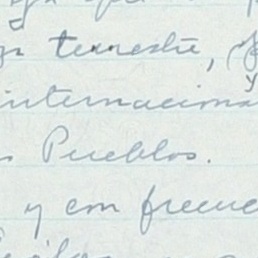 terrestre,
internaciona
Pueblos.
y con frecue